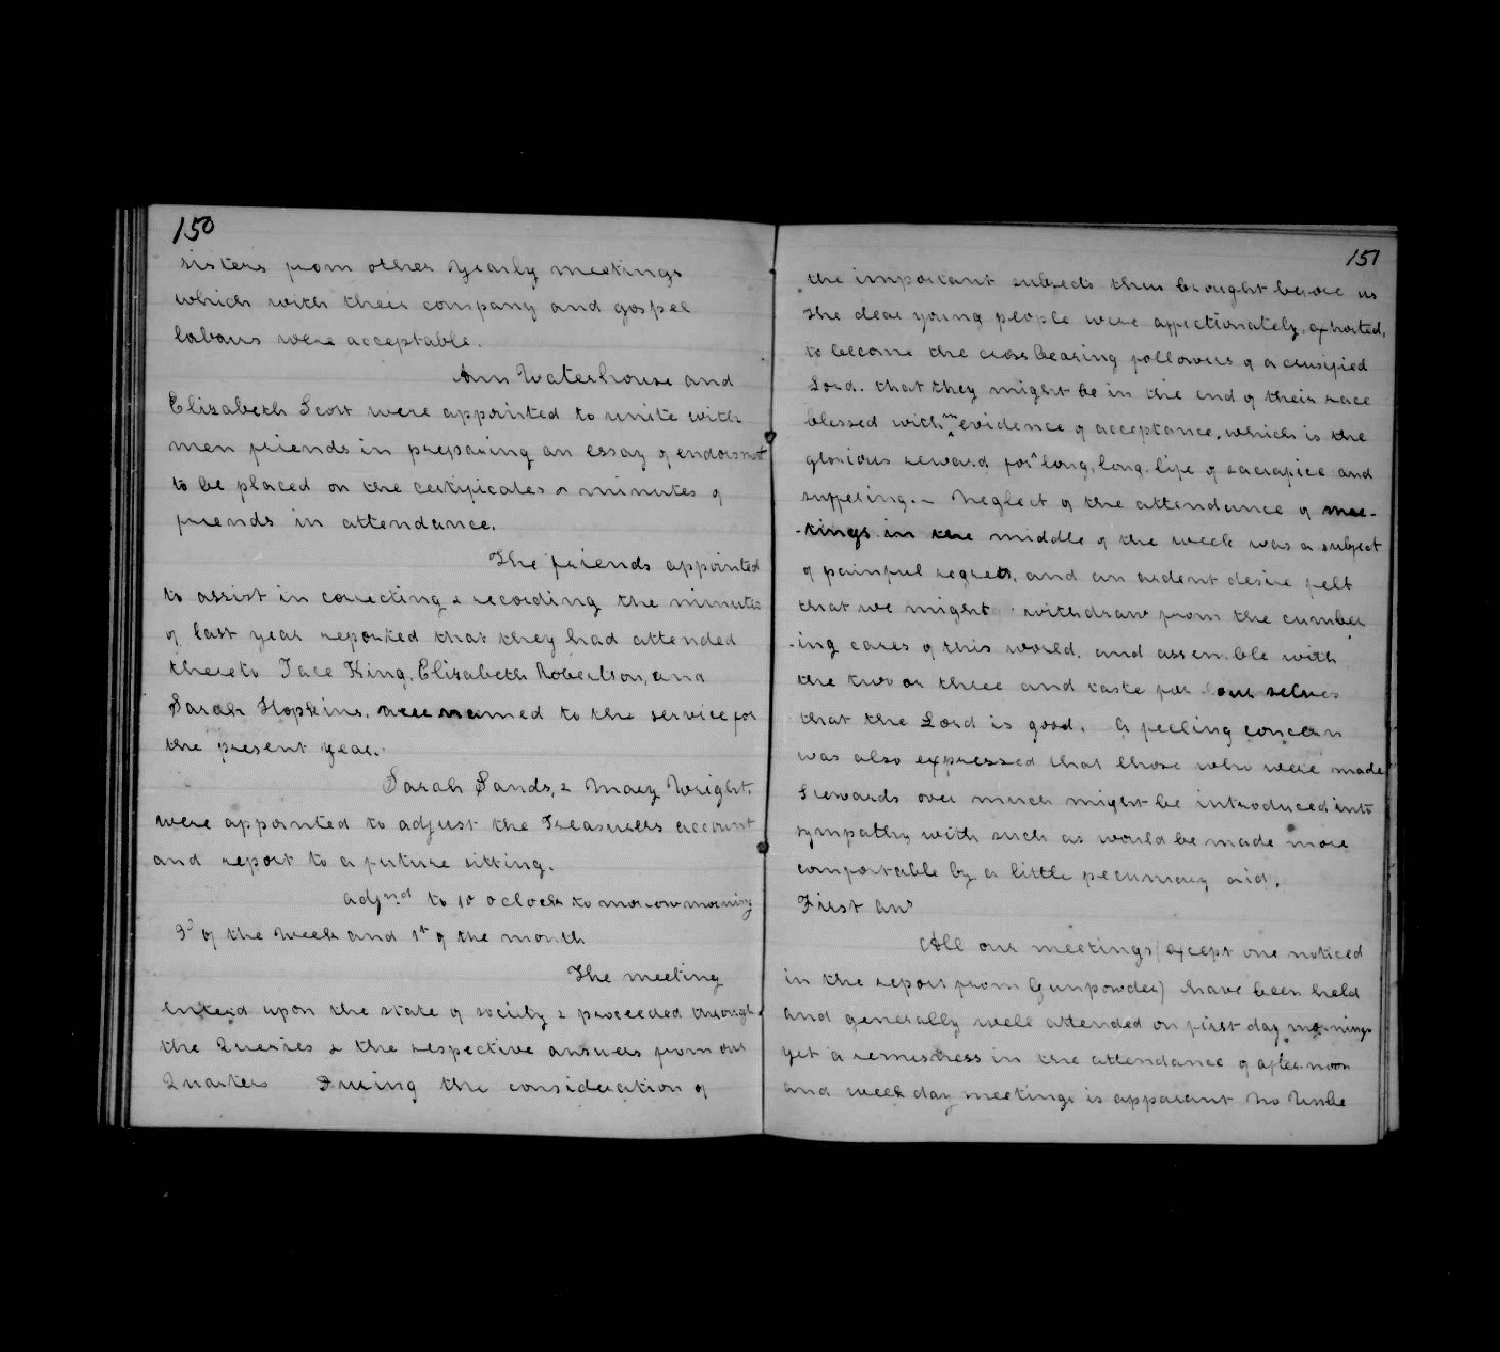 150
sisters from other Yearly meetings
which with their company and gospel
labours were acceptable.
Ann Waterhouse and
Elizabeth Scott were appointed to unite with
men friends in preparing an essay of endorsment
to be placed on the certificates & minutes of
friends in attendance.
The friends appointed
to assist in correcting & recording the minutes
of last year reported that they had attended
thereto Tace King, Elizabeth Robertson, and
Sarah Hopkins, are named to the service for
the present year.
Sarah Sands, & Mary Wright.
were appointed to adjust the Treasurers account
and report to a future sitting.
adjnd to 10 oclock to morrow morning
3d of the week and 1st of the month
The meeting
entered upon the state of society & proceeded through
the Queries & the respective answers from our
Quarters During the consideration of
151
the important subjects thus brought before us
the dear young people were affectionately, exhorted,
to become the cross bearing followers of a crusified
Lord. that they might be in the end of their race
blessed with an evidence of acceptance, which is the
glorious reward for long, long life of sacrafice and
suffeling. – Neglect of the attendance of mee-
-tings in the middle of the week was a subject
of painful regret, and an ardent desire felt
that we might withdraw from the cumber
-ing cares of this world. and assemble with
the two or three and taste for our selves
that the Lord is good. A feeling concern
was also expressed that those who were made
Stewards over much might be introduced into
sympathy with such as would be made more
comfortable by a little pecuniary aid.
First ansr
All our meetings (except one noticed
in the report from Gunpowder) have been held
and generally well attended on first day mornings
yet a remissness in the attendance of afternoon
and week day meetings is apparant No Unbe